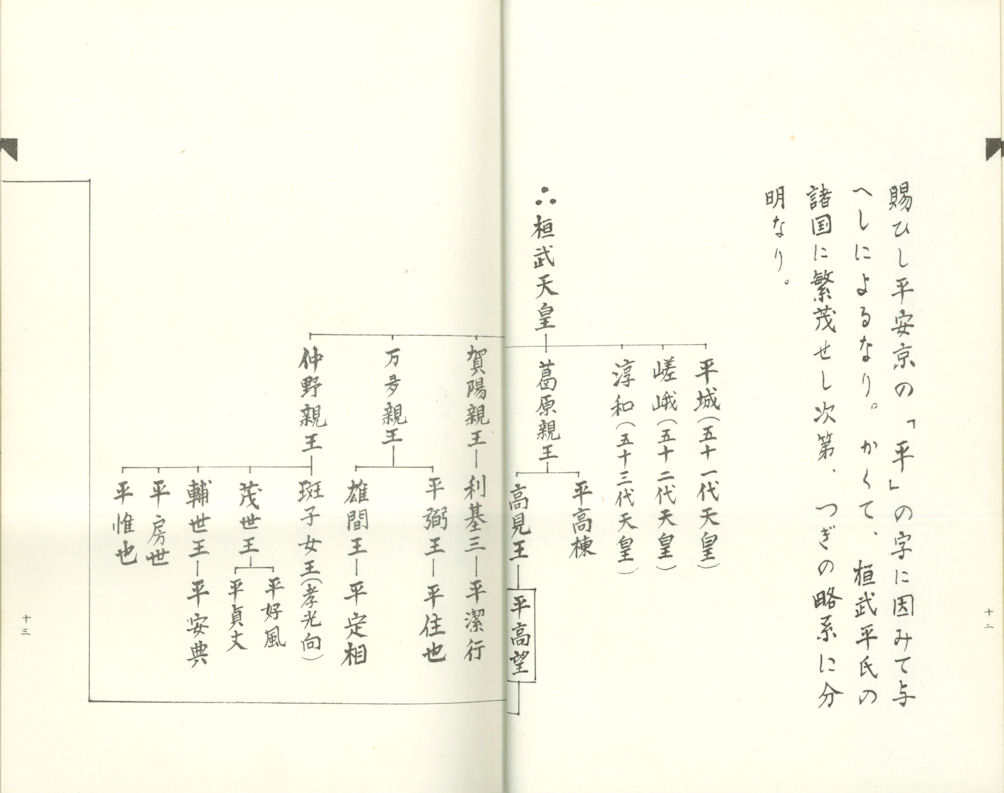 賜ひし平安京の「平」の字に因みて与
へしによるなり。かくて、桓武平氏の
諸国に繁茂せし次第、つぎの略系に分
明なり。
十二
∴桓武天皇
平城（五十一代天皇）
嵯峨（五十二代天皇）
淳和（五十三代天皇）
葛原親王
平高棟
高見王
平高望
賀陽親王
利基三
平潔行
万多親王
平弼王
平住也
雄間王
平定相
仲野親王
斑子女王（孝光向）
茂世王
平好風
平貞文
輔世王
平安典
平房世
平惟也
十三